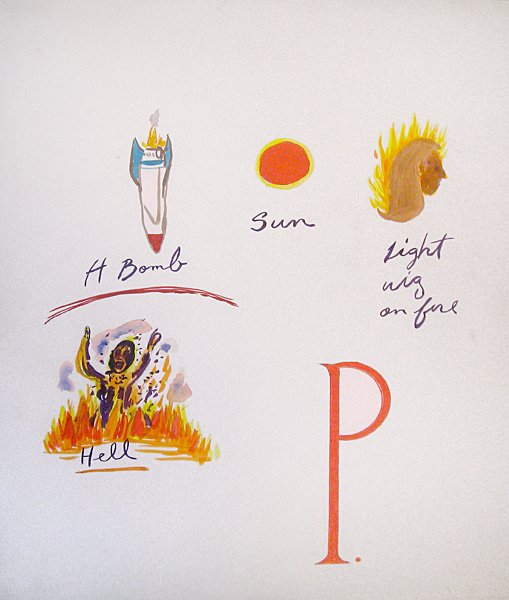 H Bomb
Sun
Light
wig
on fire
Hell
P.